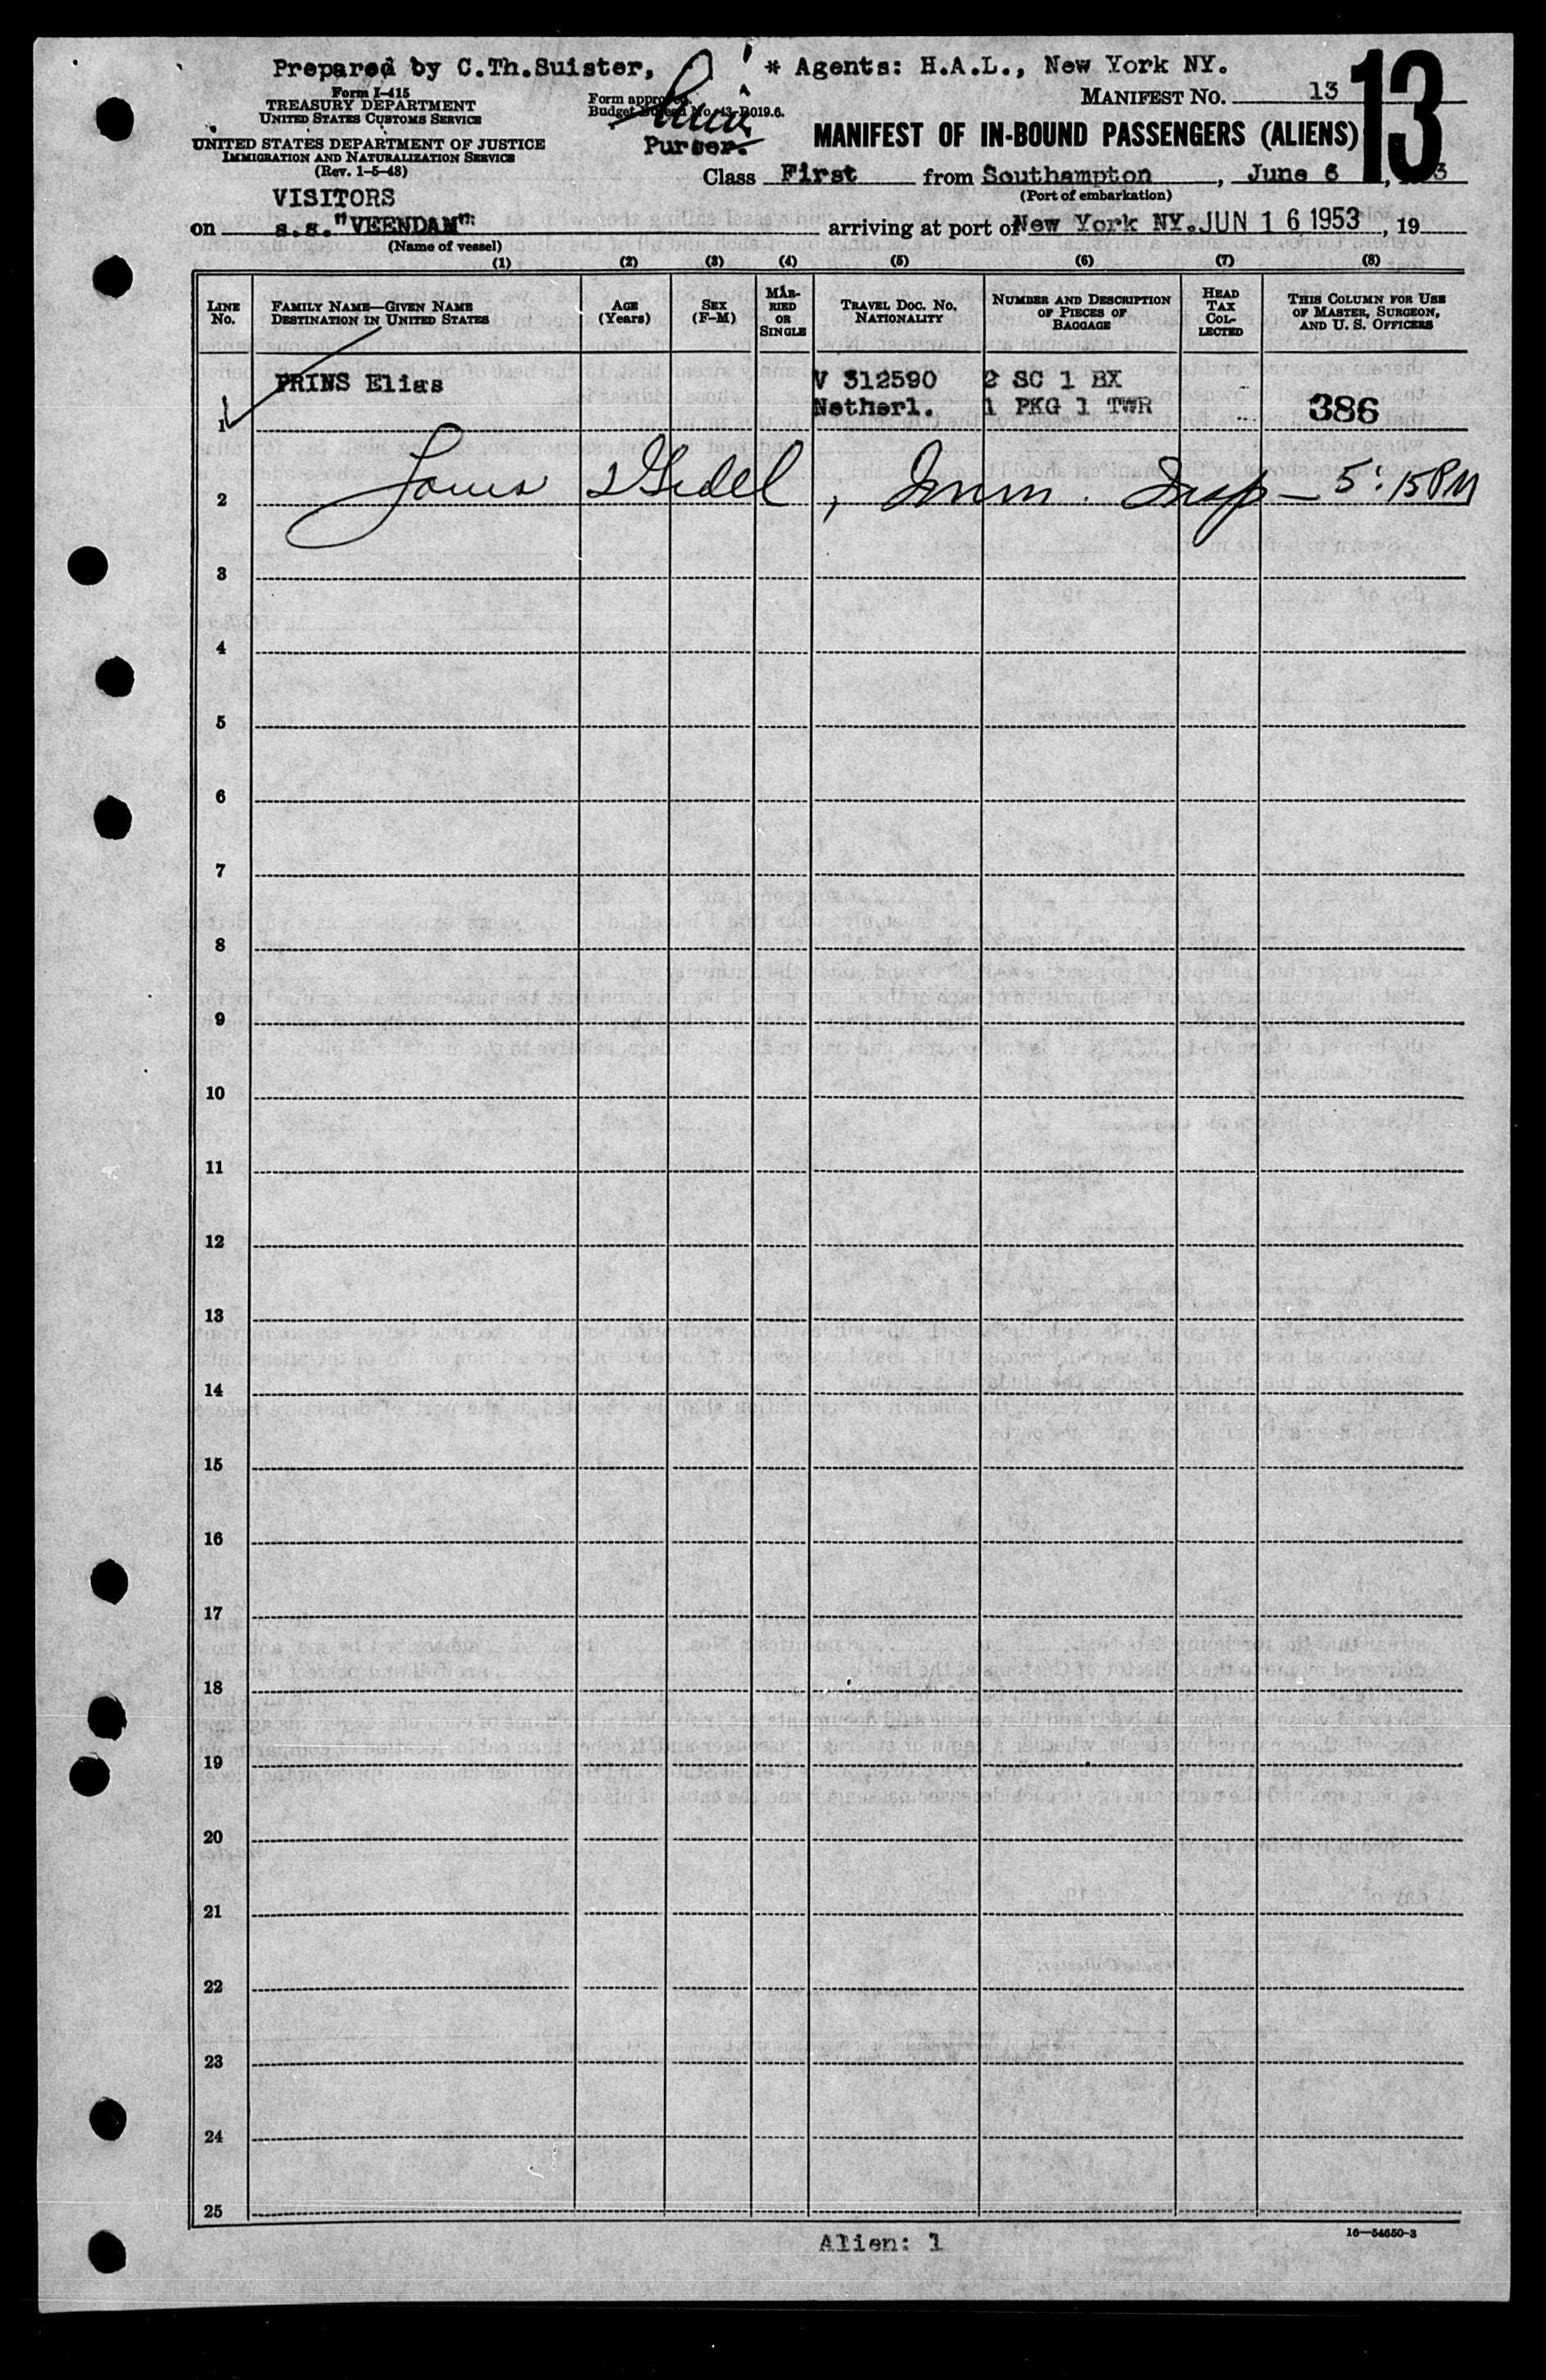 Prepared by C.Th.Suister, * Agents: H.A.L., New York NY.
Form I-415
TREASURY DEPARTMENT
UNITED STATES CUSTOMS SERVICE
UNITED STATES DEPARTMENT OF JUSTICE
IMMIGRATION AND NATURALIZATION SERVICE
(Rev. 1-5-48)
Form approved.
Budget Bureau No. 43-R019.6.
Purser.
MANIFEST NO. 13
13
MANIFEST OF IN-BOUND PASSENGERS (ALIENS)
Class First from Southampton, June 6
(Port of embarkation)
VISITORS
on s.s."VEENDAM" arriving at port of New York NY. JUN 16 1953, 19
(Name of vessel)
(1) (2) (3) (4) (5) (6) (7) (8)
LINE NO. FAMILY NAME—GIVEN NAME DESTINATION IN UNITED STATES AGE (Years) SEX (F-M) MARRIED OR SINGLE TRAVEL DOC. NO. NATIONALITY NUMBER AND DESCRIPTION OF PIECES OF BAGGAGE HEAD TAX COLLECTED THIS COLUMN FOR USE OF MASTER, SURGEON, AND U. S. OFFICERS
PRINS Elias V 312590 2 SC 1 BX
1 Netherl. 1 PKG 1 TWR 386
2 Louis , Imm. Insp — 5:15 PM
3
4
5
6
7
8
9
10
11
12
13
14
15
16
17
18
19
20
21
22
23
24
25
Alien: 1
16—54650-3